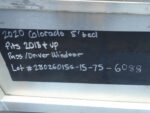 2020 Colorado 5'
Fits 2015 + up
Pass/Driver Window
Lot # 280260156-15-75-6088